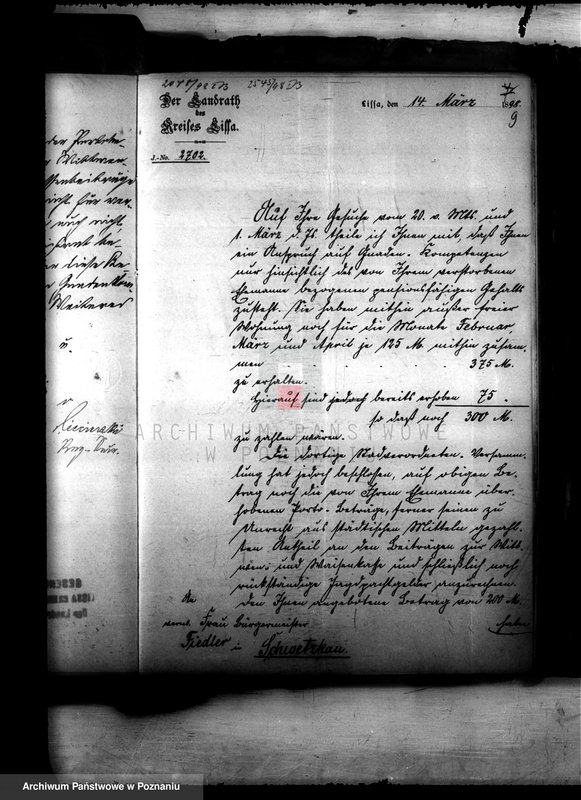 2078/98 DB 2545/98 DB
Der Landrath
des
Kreises Lissa.
J.-No. 2702.
Lissa, den 14. März 1898.
9
Auf Ihre Gesuche vom 20. v. Mts. und
1. März d. Js. theile ich Ihnen mit, daß Ihnen
ein Anspruch auf Gnaden-Kompetenzen
nur hinsichtlich des von Ihrem verstorbenen
Ehemanne bezogenen pensionsfähigen Gehalts
zusteht. Sie haben mithin außer freier
Wohnung noch für die Monate Februar,
März und April je 125 M. mithin zusam-
men 375 M.
zu erhalten.
Hierauf sind jedoch bereits erhoben 75 "
so daß noch 300 M.
zu zahlen wären.
Die dortige Stadtverordneten-Versamm-
lung hat jedoch beschlossen, auf obigen Be-
trag noch die von Ihrem Ehemanne über-
hobenen Porto-Beträge, ferner seinen zu
Unrecht aus städtischen Mitteln gezahl-
ten Antheil an den Beiträgen zur Witt-
wen- und Waisenkasse und schließlich noch
rückständige Jagdpachtgelder anzurechnen.
Den Ihnen angebotene Betrag von 200 M.
haben
An
verw. Frau Bürgermeister
Fiedler
in Schwetzkau.
der Portobe-
Wittwen-
nicht für ver-
auch nicht
in diese Be-
Weiteres
u.
ARCHIWUM PAŃSTWOWE
W POZNANIU
Archiwum Państwowe w Poznaniu